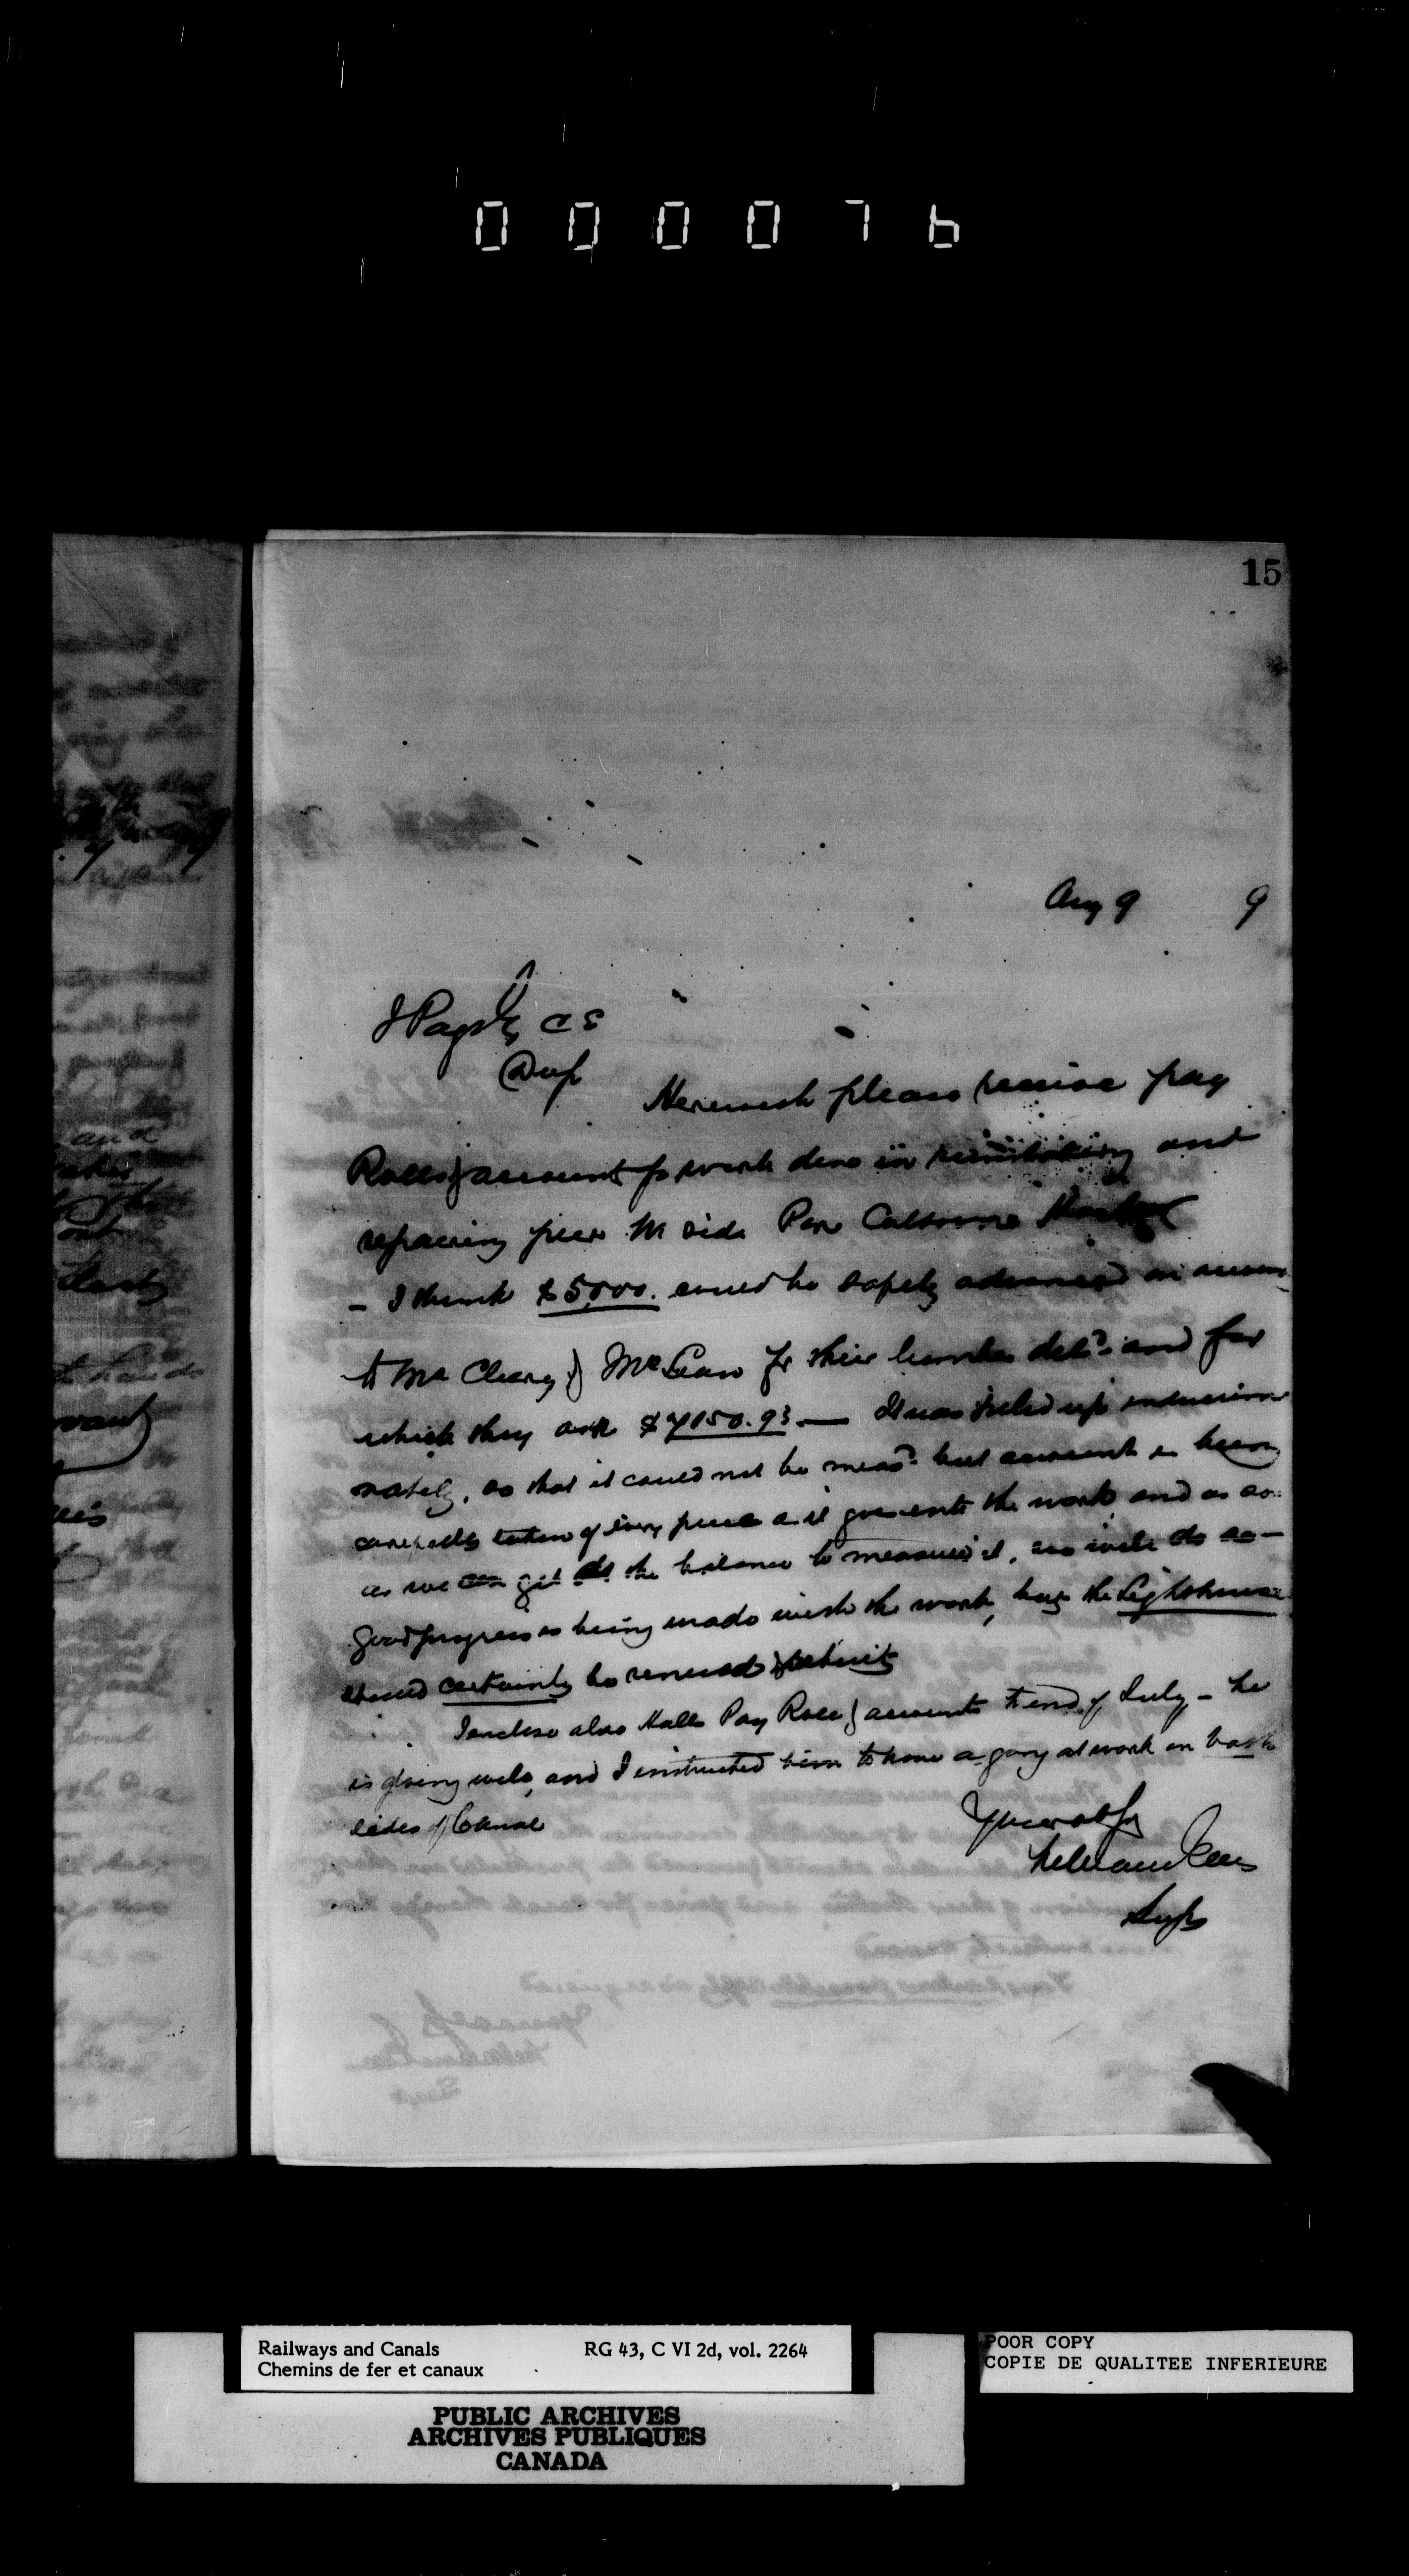 000076
15
Aug 9 9
J Page Esq C E
Herewith please receive pay
Rolls & account for work done in and
repairing pier W side Port Colborne Harbor
- I think $5,000. could be safely advanced on account
to McCleary & McLean for their lumber deld. and for
which they ask $7150.93. — It was piled up
so that it could not be measd. but account is being
carefully taken of every piece as it goes into the work and as soon
as we can get at the balance to measure it, we will do so —
Good progress is being made with the work, the Lighthouse
should certainly be removed & rebuilt
I enclose also Halls Pay Roll & accounts to end of July - he
is doing well, and I instructed him to have a gang at work on both
sides of Canal
Your ob Sr
Supt
Railways and Canals RG 43, C VI 2d, vol. 2264
Chemins de fer et canaux
POOR COPY
COPIE DE QUALITEE INFERIEURE
PUBLIC ARCHIVES
ARCHIVES PUBLIQUES
CANADA